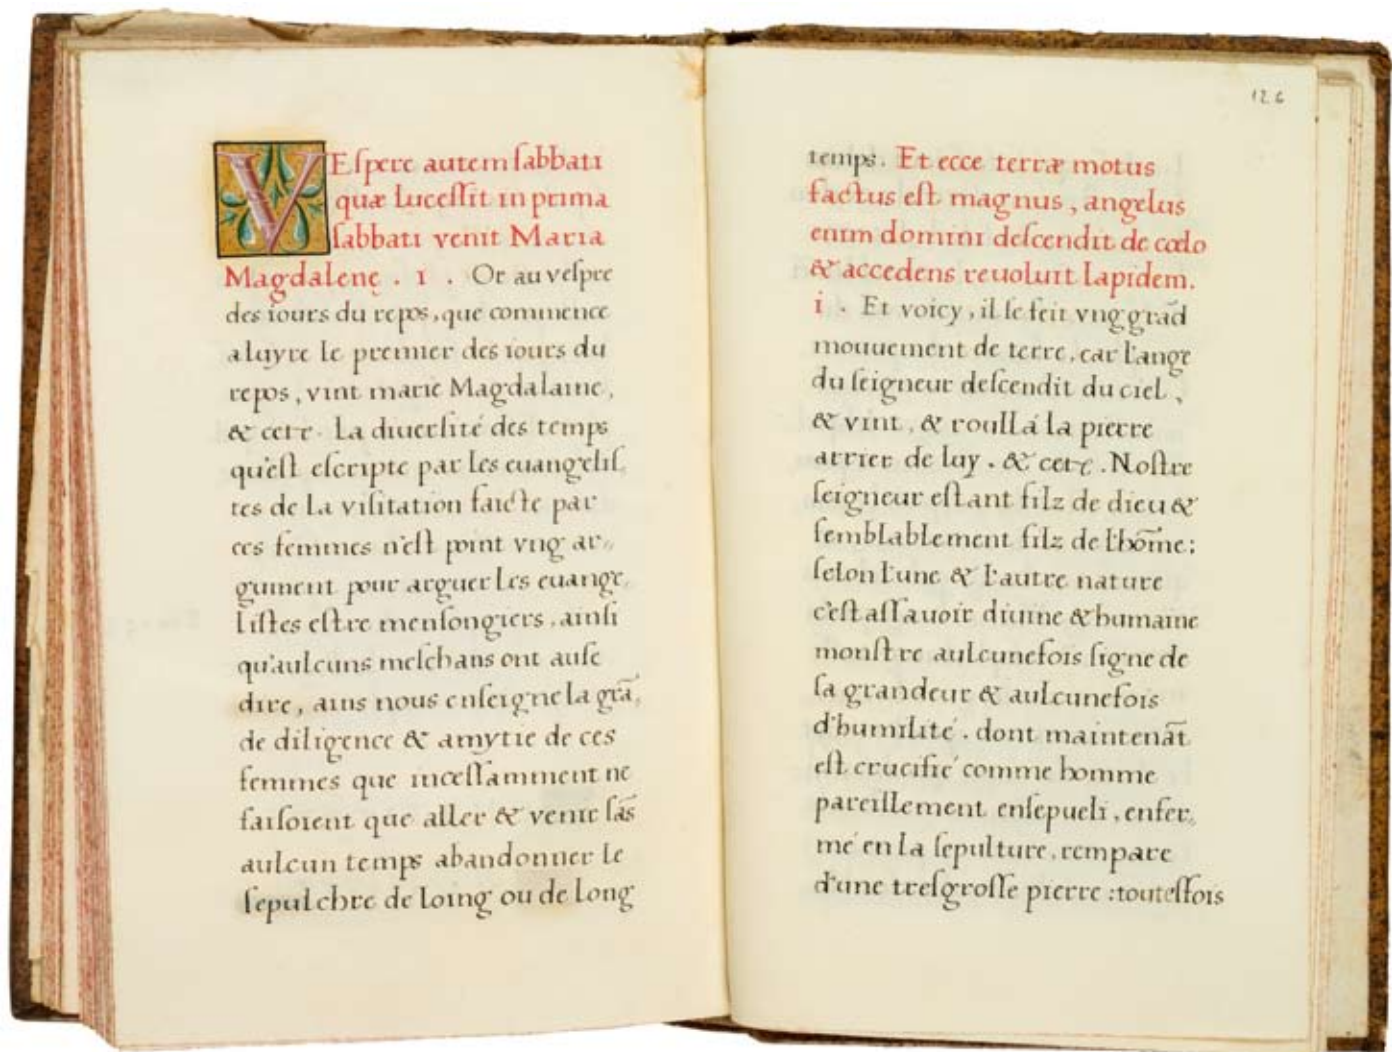 VEſpere autem ſabbati
quæ luceſſit in prima
ſabbati venit Maria
Magdalenę . 1 . Or au veſpre
des iours du repos, que commence
a luyre le premier des iours du
repos, vint marie Magdalaine,
& cete. La diuerſité des temps
qu'eſt eſcripte par les euangeliſ,,
tes de la viſitation faicte par
ces femmes n'eſt point vng ar,,
gument pour arguer les euange,,
liſtes eſtre menſongiers, ainſi
qu'aulcuns meſchans ont auſe
dire, ains nous enſeigne la grā,,
de diligence & amytie de ces
femmes que inceſſamment ne
faiſoient que aller & venir ſās
aulcun temps abandonner le
ſepulchre de loing ou de long
126
temps. Et ecce terræ motus
factus eſt magnus, angelus
enim domini deſcendit de cœlo
& accedens reuoluit lapidem.
i . Et voicy, il ſe feit vng grād
mouuement de terre, car l'ange
du ſeigneur deſcendit du ciel,
& vint, & roullá la pierre
arrier de luy. & cete. Noſtre
ſeigneur eſtant filz de dieu &
ſemblablement filz de l'hōme:
ſelon l'une & l'autre nature
c'eſt aſſauoir diuine & humaine
monſtre aulcunefois ſigne de
ſa grandeur & aulcunefois
d'humilité. dont maintenāt
eſt crucifié comme homme
pareillement enſepueli, enfer,,
mé en la ſepulture, rempare
d'une treſgroſſe pierre: touteſfois